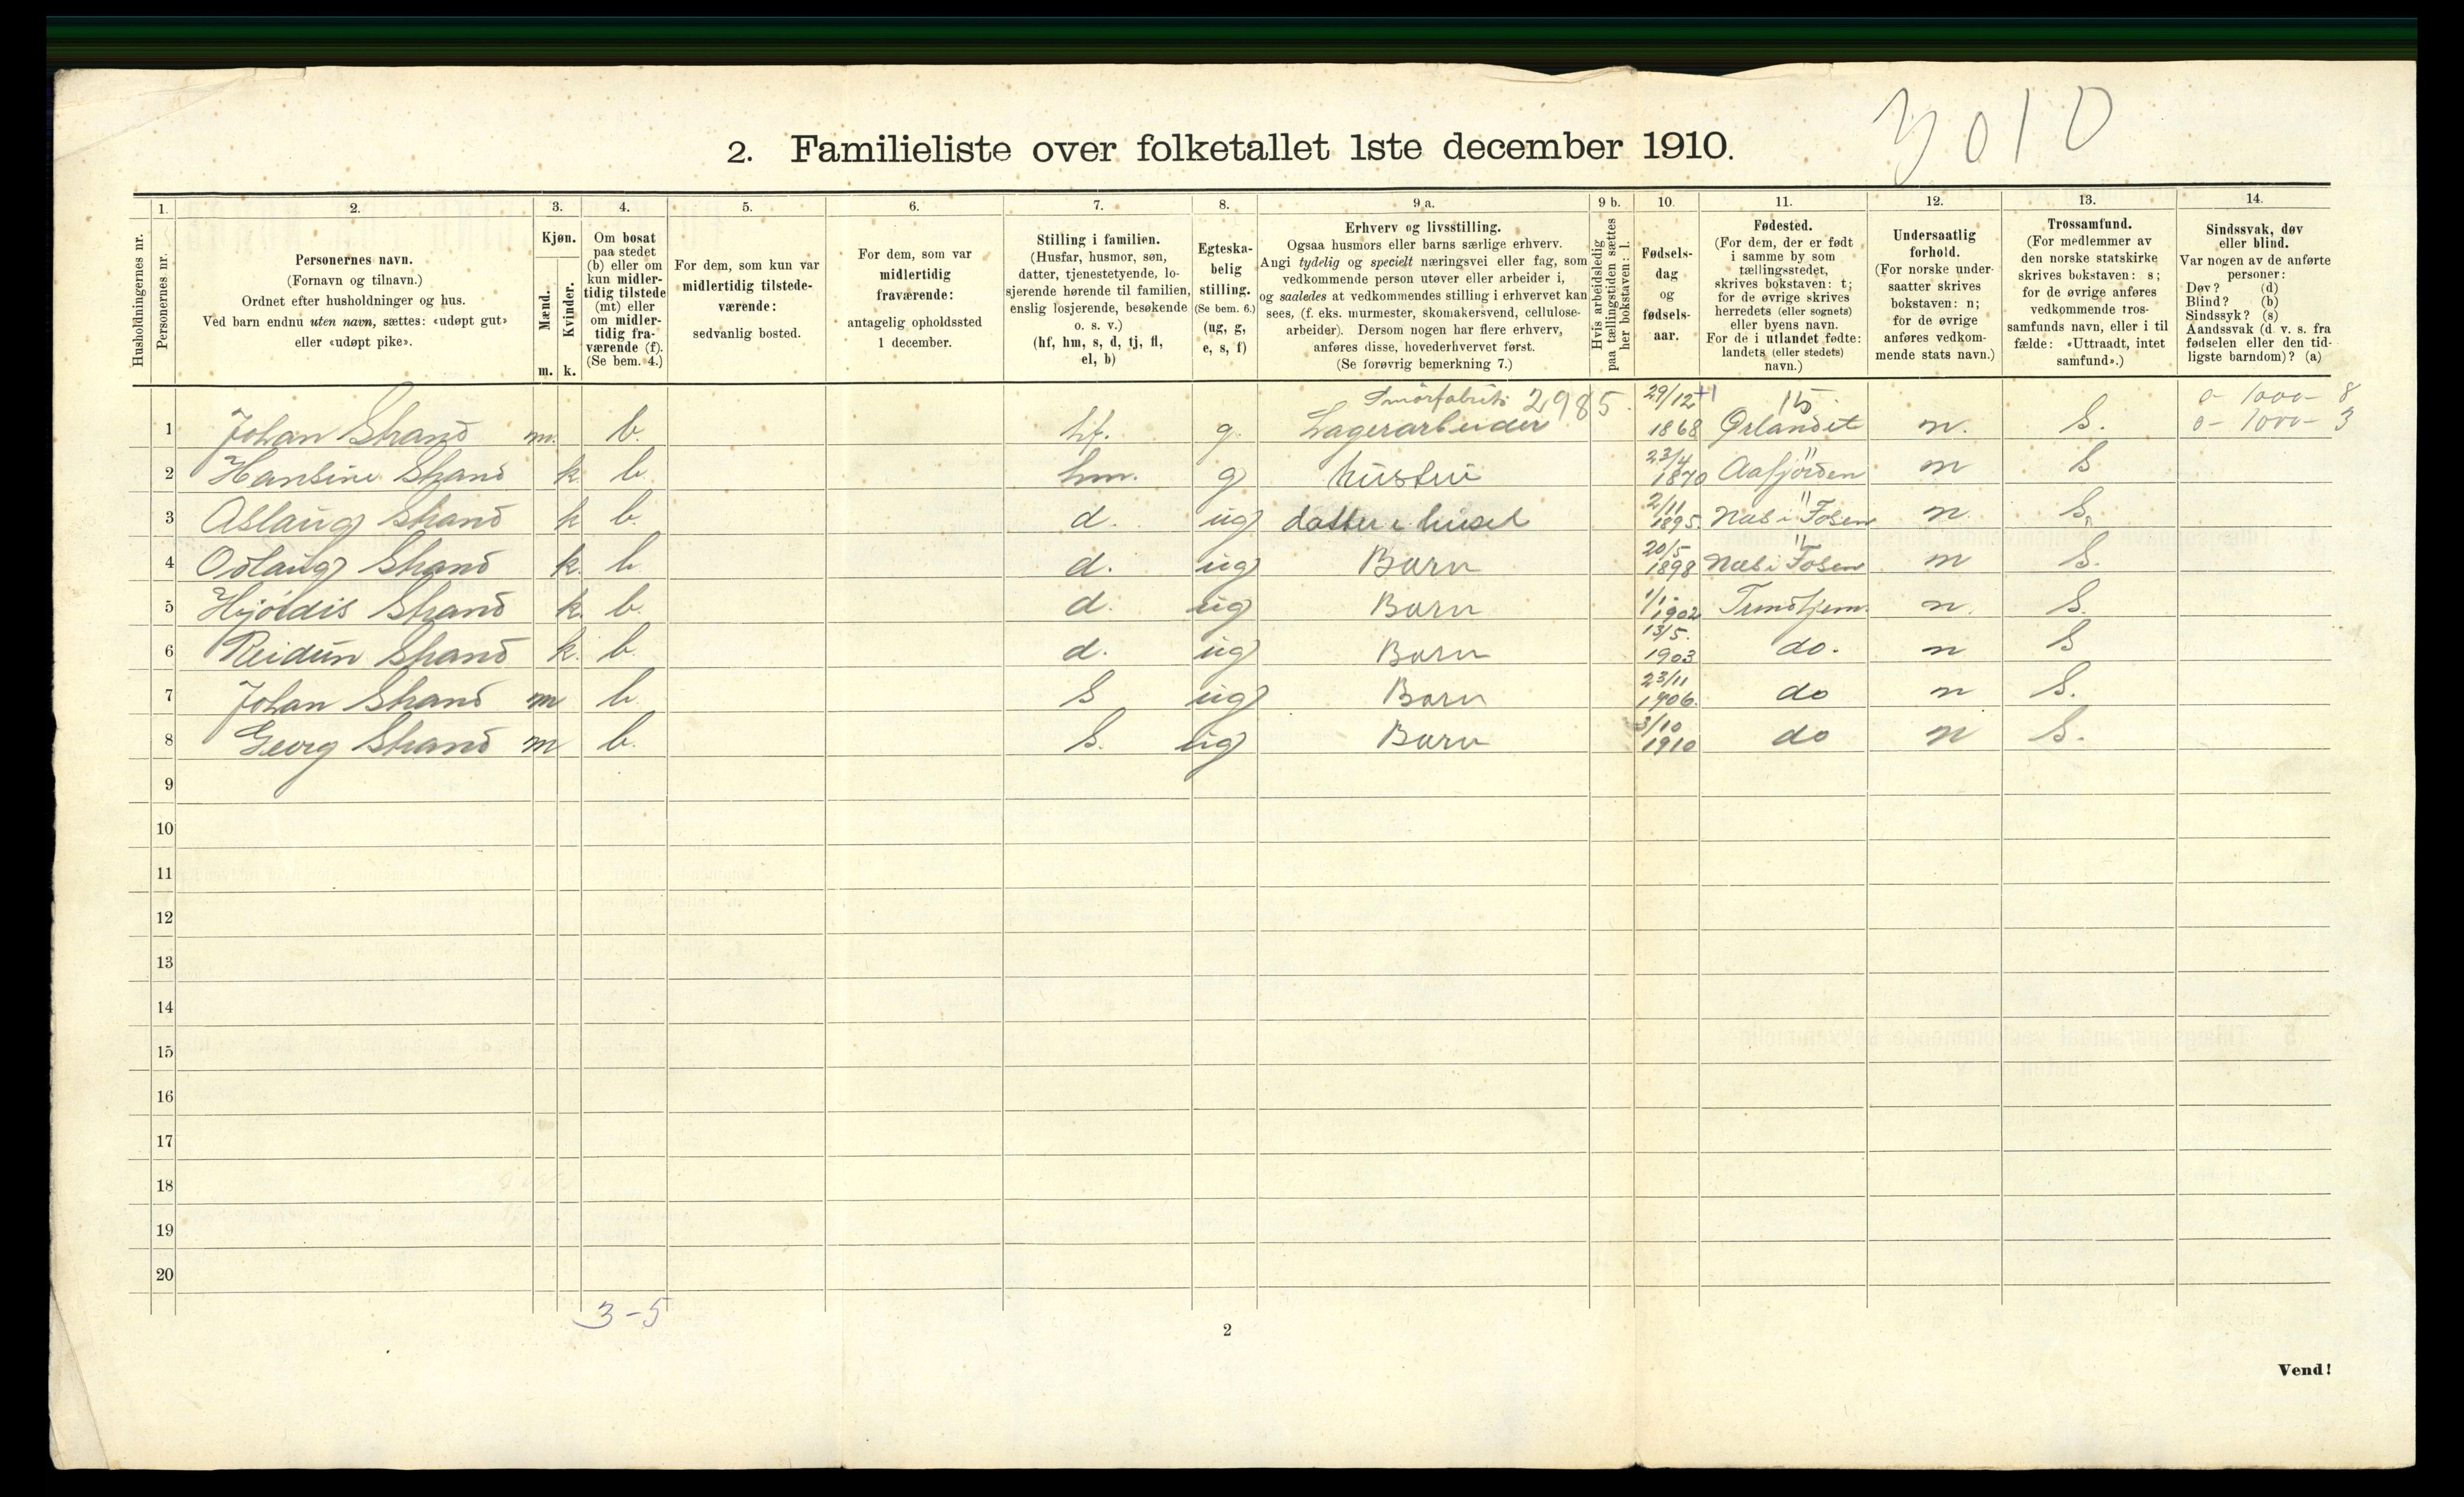 3010
2. Familieliste over folketallet 1ste december 1910.
Husholdningernes nr.
1.
Personernes nr.
2.
Personernes navn.
(Fornavn og tilnavn.)
Ordnet efter husholdninger og hus.
Ved barn endnu uten navn, sættes: «udøpt gut»
eller «udøpt pike».
3.
Kjøn.
Mænd.
Kvinder.
m. k.
4.
Om bosat
paa stedet
(b) eller om
kun midler-
tidig tilstede
(mt) eller
om midler-
tidig fra-
værende (f).
(Se bem. 4.)
5.
For dem, som kun var
midlertidig tilstede-
værende:
sedvanlig bosted.
6.
For dem, som var
midlertidig
fraværende:
antagelig opholdssted
1 december.
7.
Stilling i familien.
(Husfar, husmor, søn,
datter, tjenestetyende, lo-
sjerende hørende til familien,
enslig losjerende, besøkende
o. s. v.)
(hf, hm, s, d, tj, fl,
el, b)
8.
Egteska-
belig
stilling.
(Se bem. 6.)
(ug, g,
e, s, f)
9 a.
Erhverv og livsstilling.
Ogsaa husmors eller barns særlige erhverv.
Angi tydelig og specielt næringsvei eller fag, som
vedkommende person utøver eller arbeider i,
og saaledes at vedkommendes stilling i erhvervet kan
sees, (f. eks. murmester, skomakersvend, cellulose-
arbeider). Dersom nogen har flere erhverv,
anføres disse, hovederhvervet først.
(Se forøvrig bemerkning 7.)
9 b.
Hvis arbeidsledig
paa tællingstiden sættes
her bokstaven: l.
10.
Fødsels-
dag
og
fødsels-
aar.
11.
Fødested.
(For dem, der er født
i samme by som
tællingsstedet,
skrives bokstaven: t;
for de øvrige skrives
herredets (eller sognets)
eller byens navn.
For de i utlandet fødte:
landets (eller stedets)
navn.)
12.
Undersaatlig
forhold.
(For norske under-
saatter skrives
bokstaven: n;
for de øvrige
anføres vedkom-
mende stats navn.)
13.
Trossamfund.
(For medlemmer av
den norske statskirke
skrives bokstaven: s;
for de øvrige anføres
vedkommende tros-
samfunds navn, eller i til
fælde: «Uttraadt, intet
samfund».)
14.
Sindssvak, døv
eller blind.
Var nogen av de anførte
personer:
Døv? (d)
Blind? (b)
Sindssyk? (s)
Aandssvak (d. v. s. fra
fødselen eller den tid-
ligste barndom)? (a)
Smørfabrik 2985. 29/12 +1 15 0 - 1000 - 8
1 Johan Strand m. b. hf. g. Lagerarbeider 1868 Ørlandet n. S. 0 - 1000 - 3
2 Hansine Strand k. b. hm. g hustru 23/4 1870 " Aafjorden n S
3 Aslaug Strand k b. d. ug datter i huset 2/11 1895. " Næs i Fosen n. S.
4 Odlaug Strand k. b d. ug Barn 20/5 1898 " Næs i Fosen n S.
5 Hjørdis Strand k. b. d. ug Barn 1/1 1902 Trondhjem. n. S.
6 Reidun Strand k. b. d. ug Barn 13/5. 1903 do. n S
7 Johan Strand m b. S ug Barn 23/11 1906. do n S.
8 Georg Strand m b. S. ug Barn 3/10 1910 do n S.
9
10
11
12
13
14
15
16
17
18
19
20
3 - 5
2
Vend!